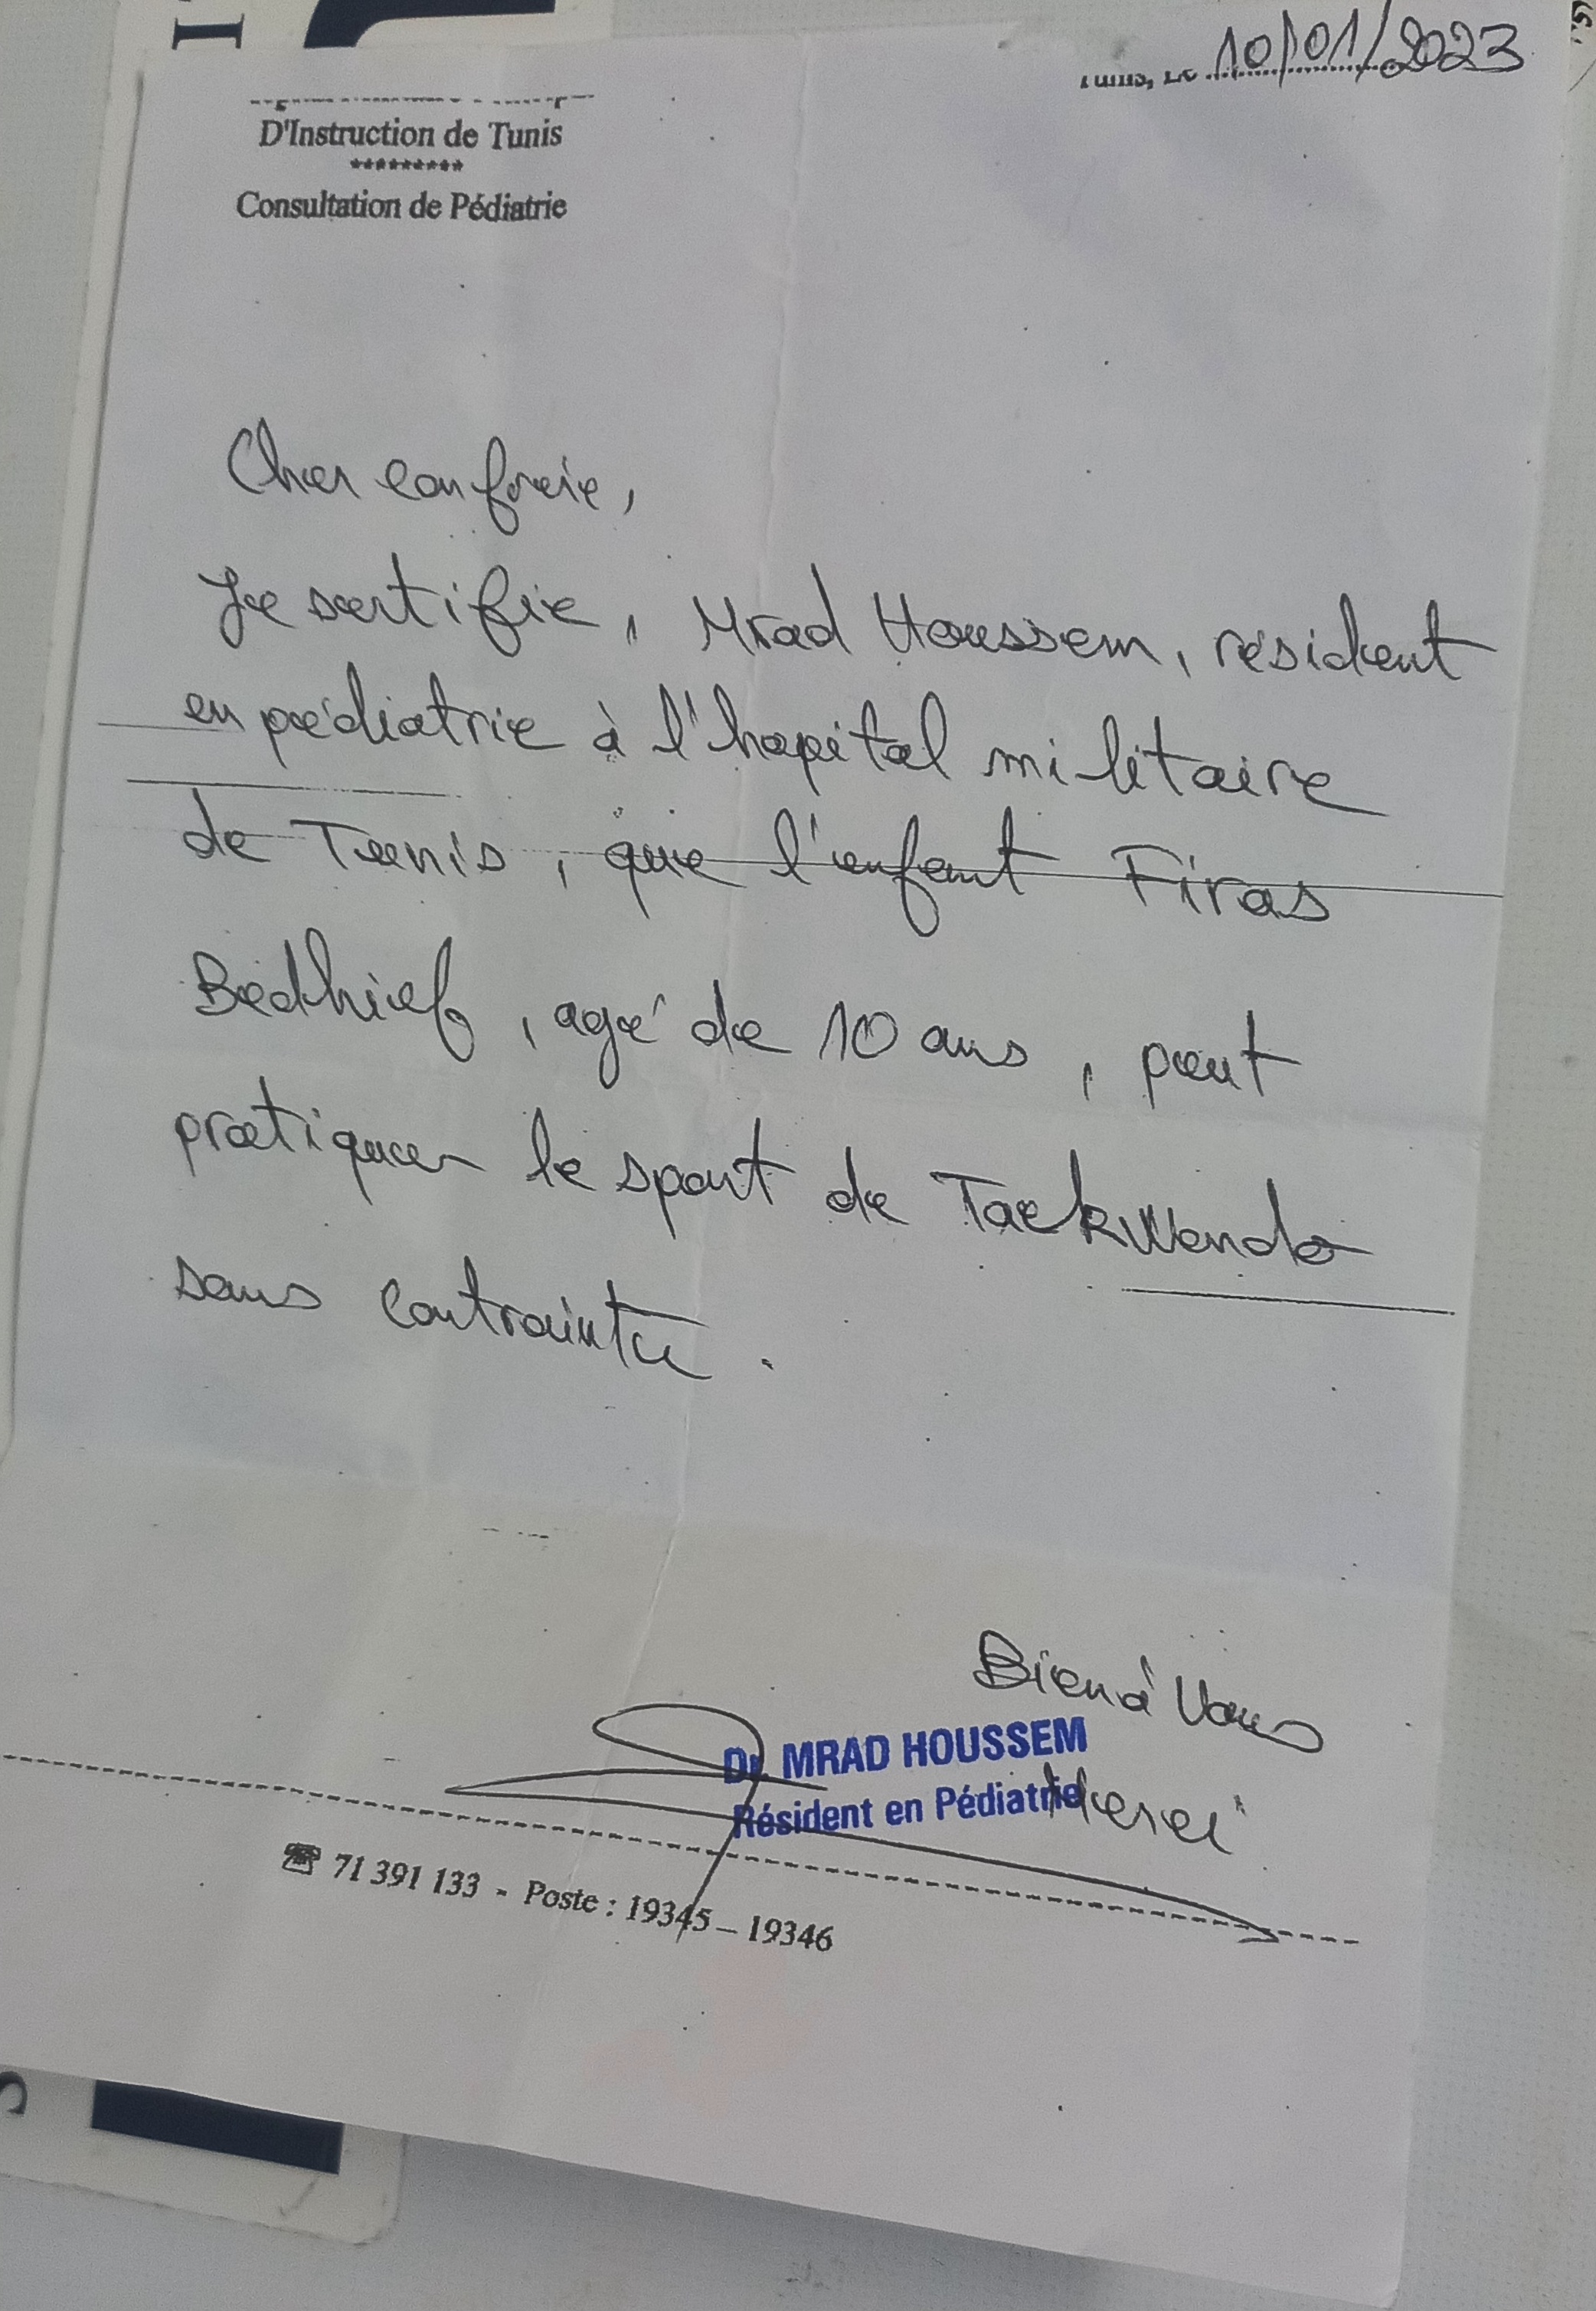 10/01/2023
D'Instruction de Tunis
*********
Consultation de Pédiatrie
Cher confrere,
Je sertifie, Mrad Houssem, résident
en pédiatrie à l'hopital militaire
de Tunis, que l'enfant Firas
Bedhief, agé de 10 ans, peut
pratiquer le sport de Taekwendo
sans contrainte.
Bien à Vous
Dr. MRAD HOUSSEM
Résident en Pédiatrie
Merci
☎ 71 391 133 - Poste : 19345 – 19346